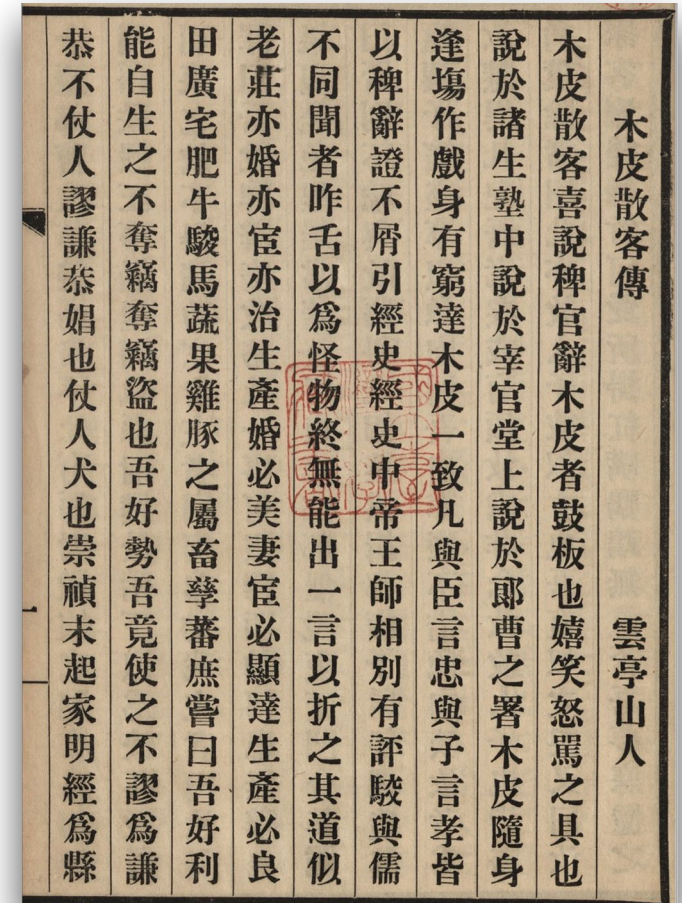 木皮散客傳　雲亭山人
木皮散客喜說稗官辭木皮者鼓板也嬉笑怒罵之具也
說於諸生塾中說於宰官堂上說於郎曹之署木皮隨身
逢塲作戲身有窮達木皮一致凡與臣言忠與子言孝皆
以稗辭證不屑引經史經史中帝王師相別有評駁與儒
不同聞者咋舌以爲怪物終無能出一言以折之其道似
老莊亦婚亦宦亦治生產婚必美妻宦必顯達生產必良
田廣宅肥牛駿馬蔬果雞豚之屬畜孳蕃庶嘗曰吾好利
能自生之不奪竊奪竊盜也吾好勢吾竟使之不謬爲謙
恭不仗人謬謙恭娼也仗人犬也崇禎末起家明經爲縣
一